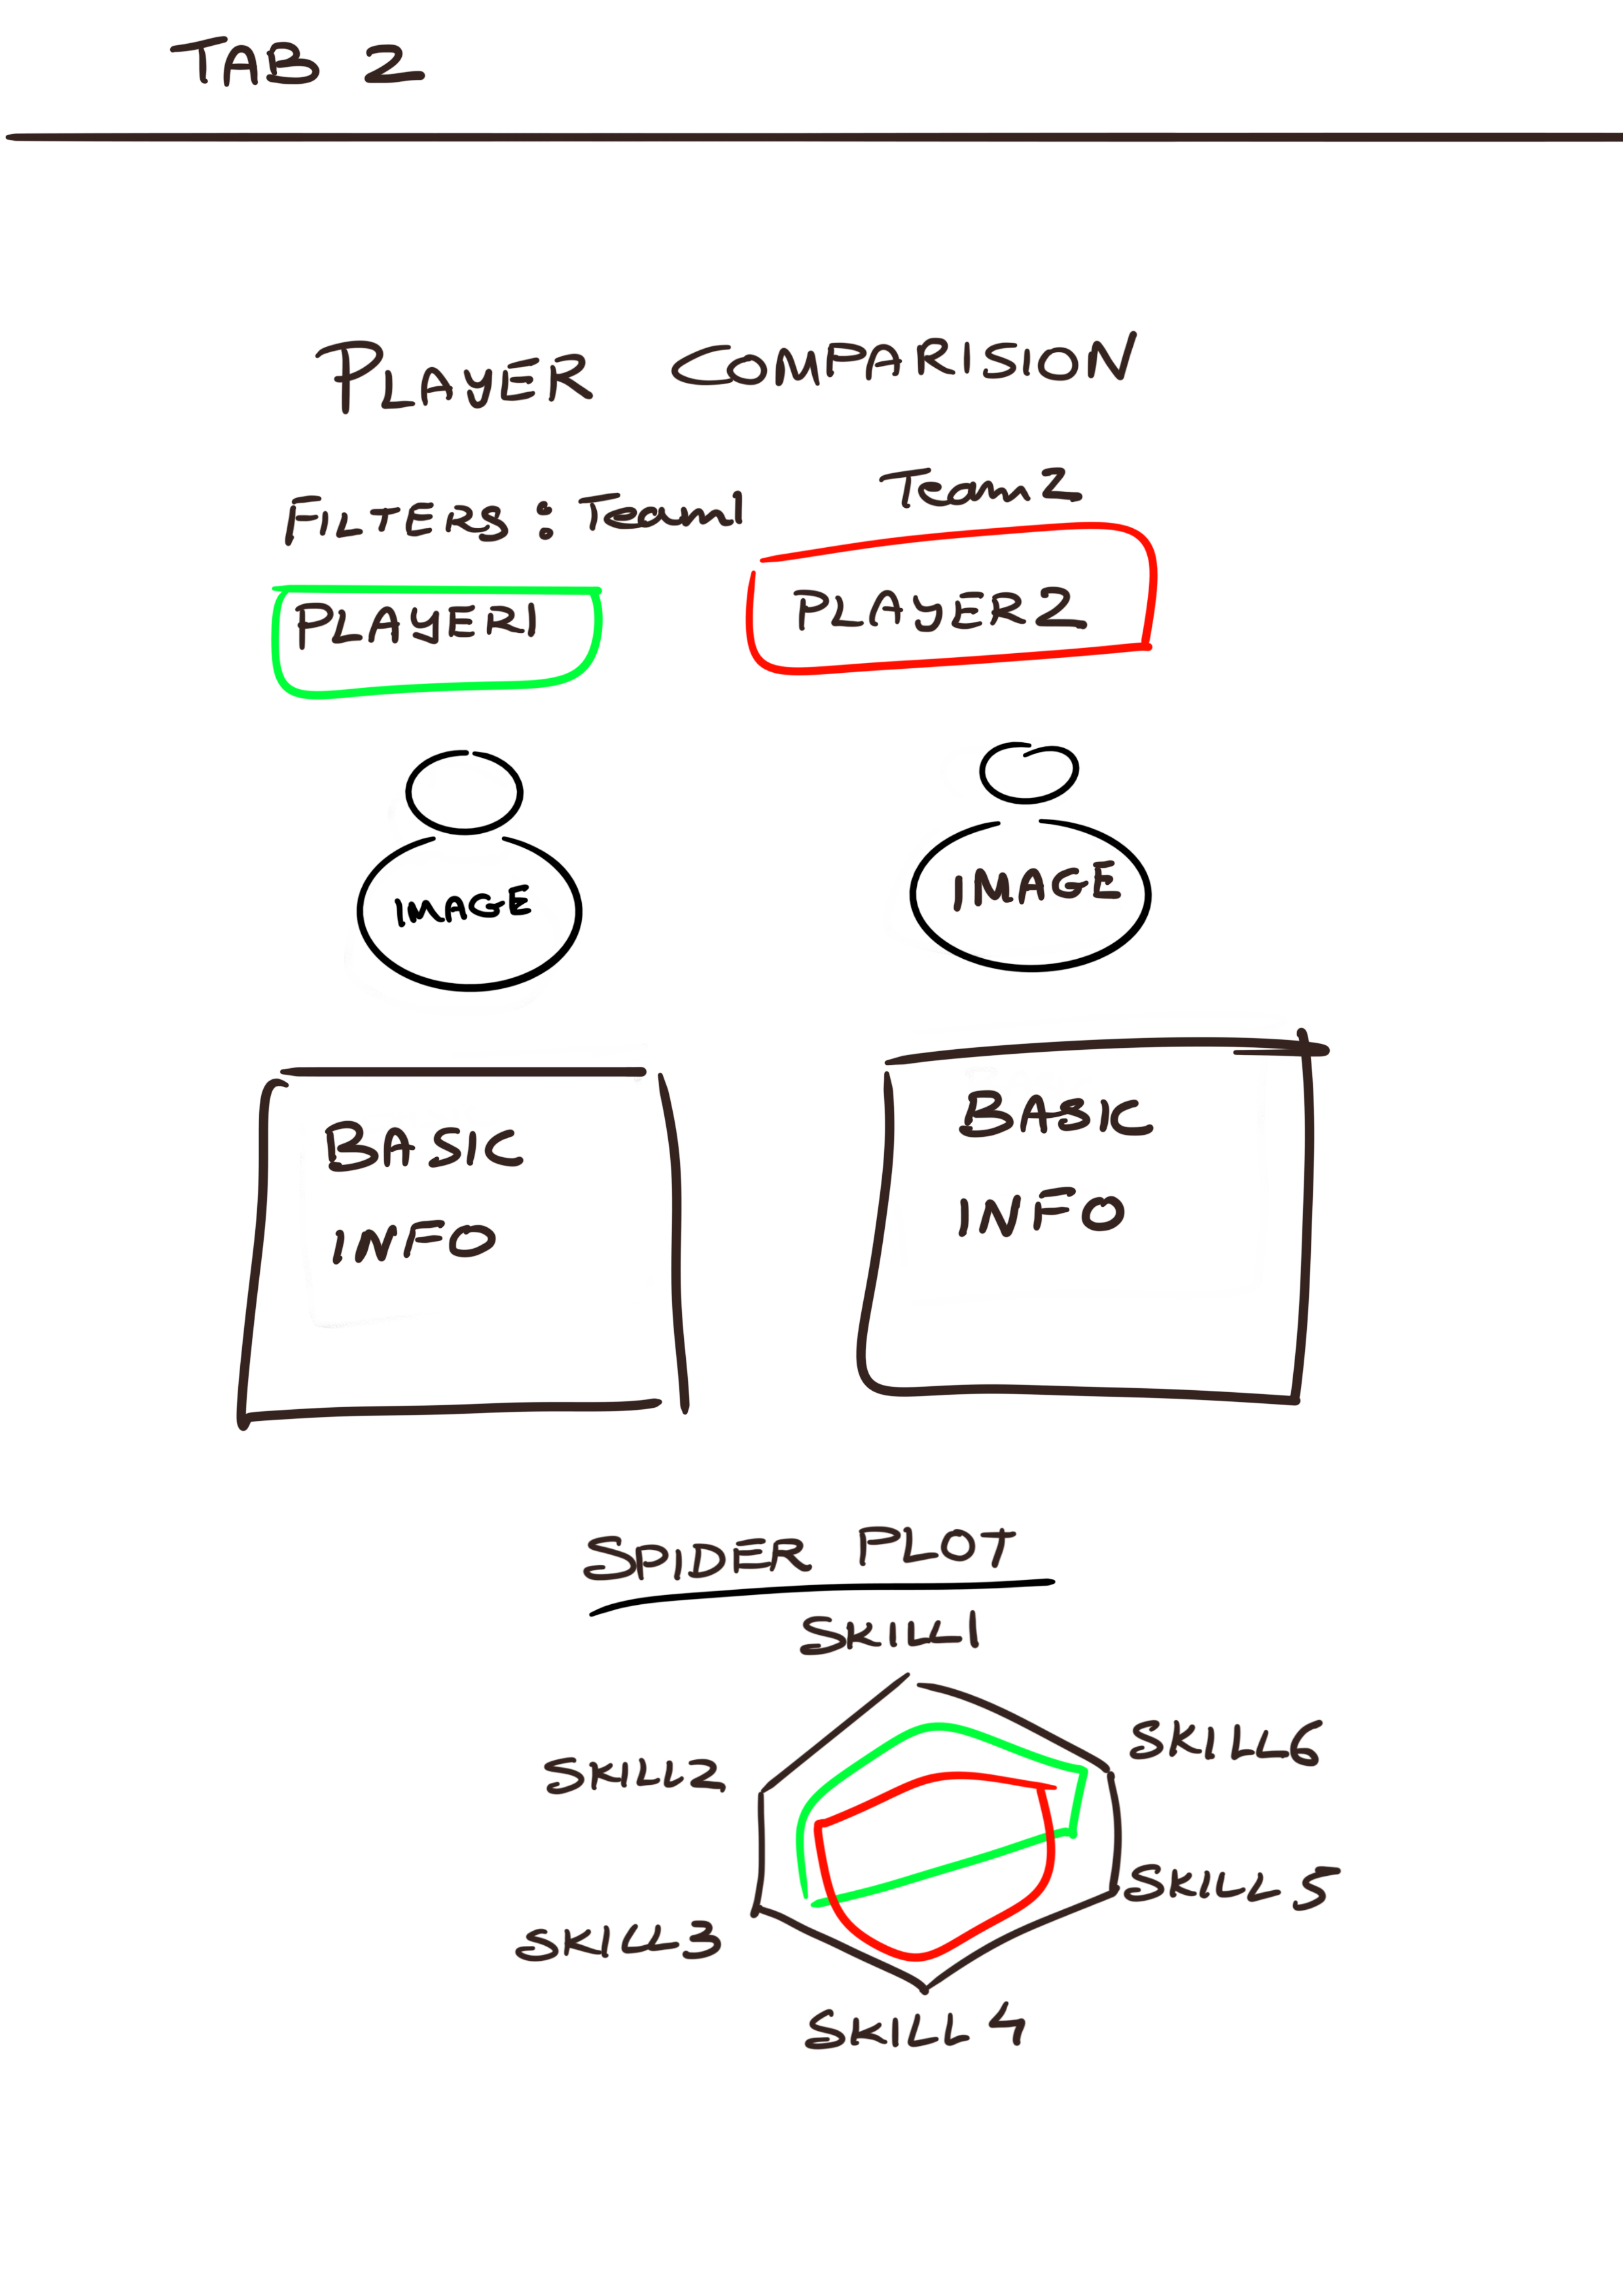 TAB 2
PLAYER COMPARISION
FILTERS : Team1 Team 2
PLAYER1 PLAYER2
IMAGE IMAGE
BASIC BASIC
INFO INFO
SPIDER PLOT
SKILL1
SKILL2 SKILL6
SKILL3 SKILL 5
SKILL 4